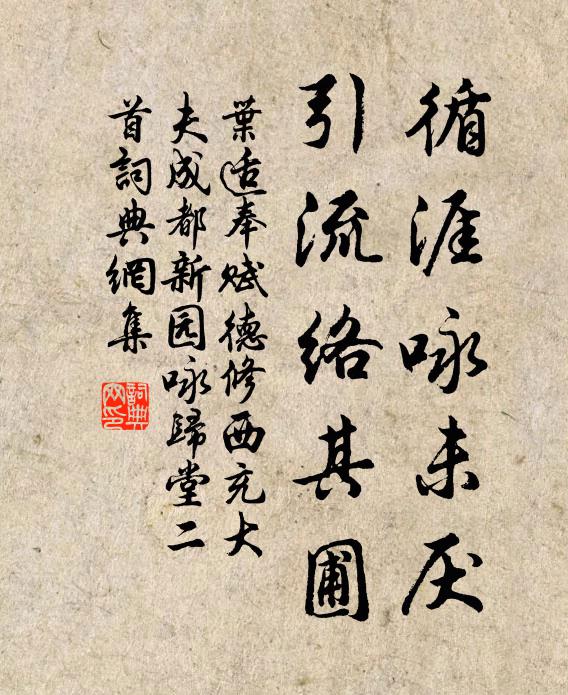 循涯咏未厌
引流络其圃
葉适奉赋德修西充大
夫成都新园咏歸堂二
首詞典網集
詞典
网印